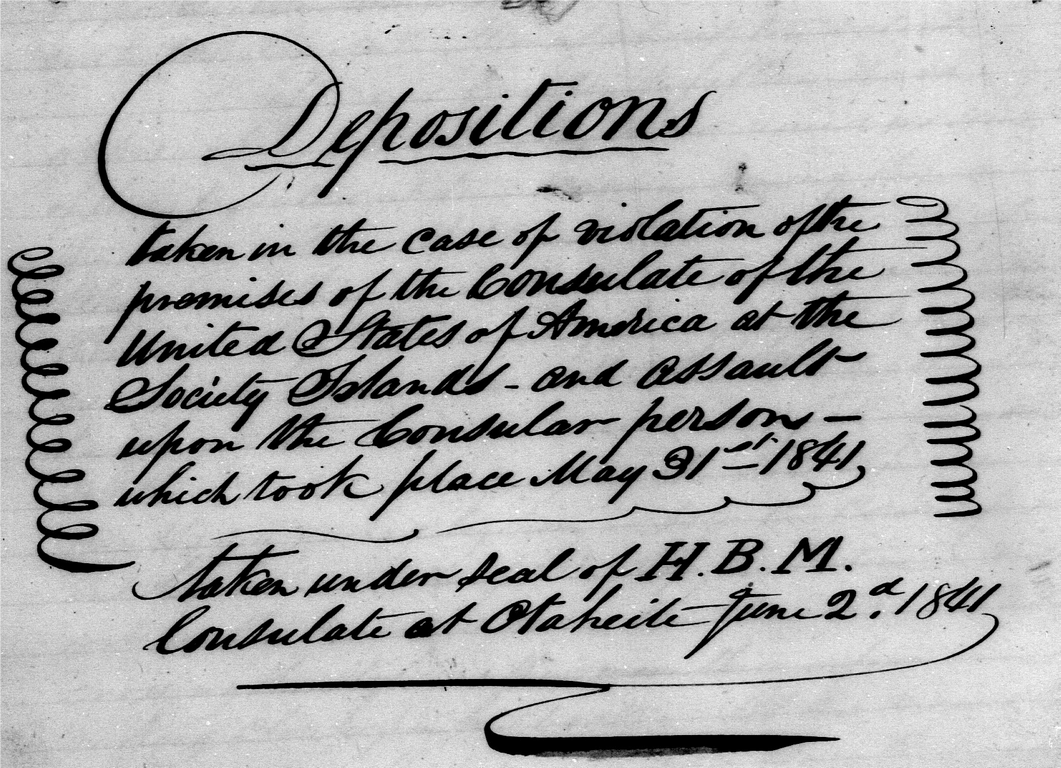 Depositions
taken in the case of violation of the
premises of the Consulate of the
United States of America at the
Society Islands - and assault
upon the Consular person -
which took place May 31st 1841,
taken under seal of H. B. M.
Consulate at Otaheite June 2d. 1841